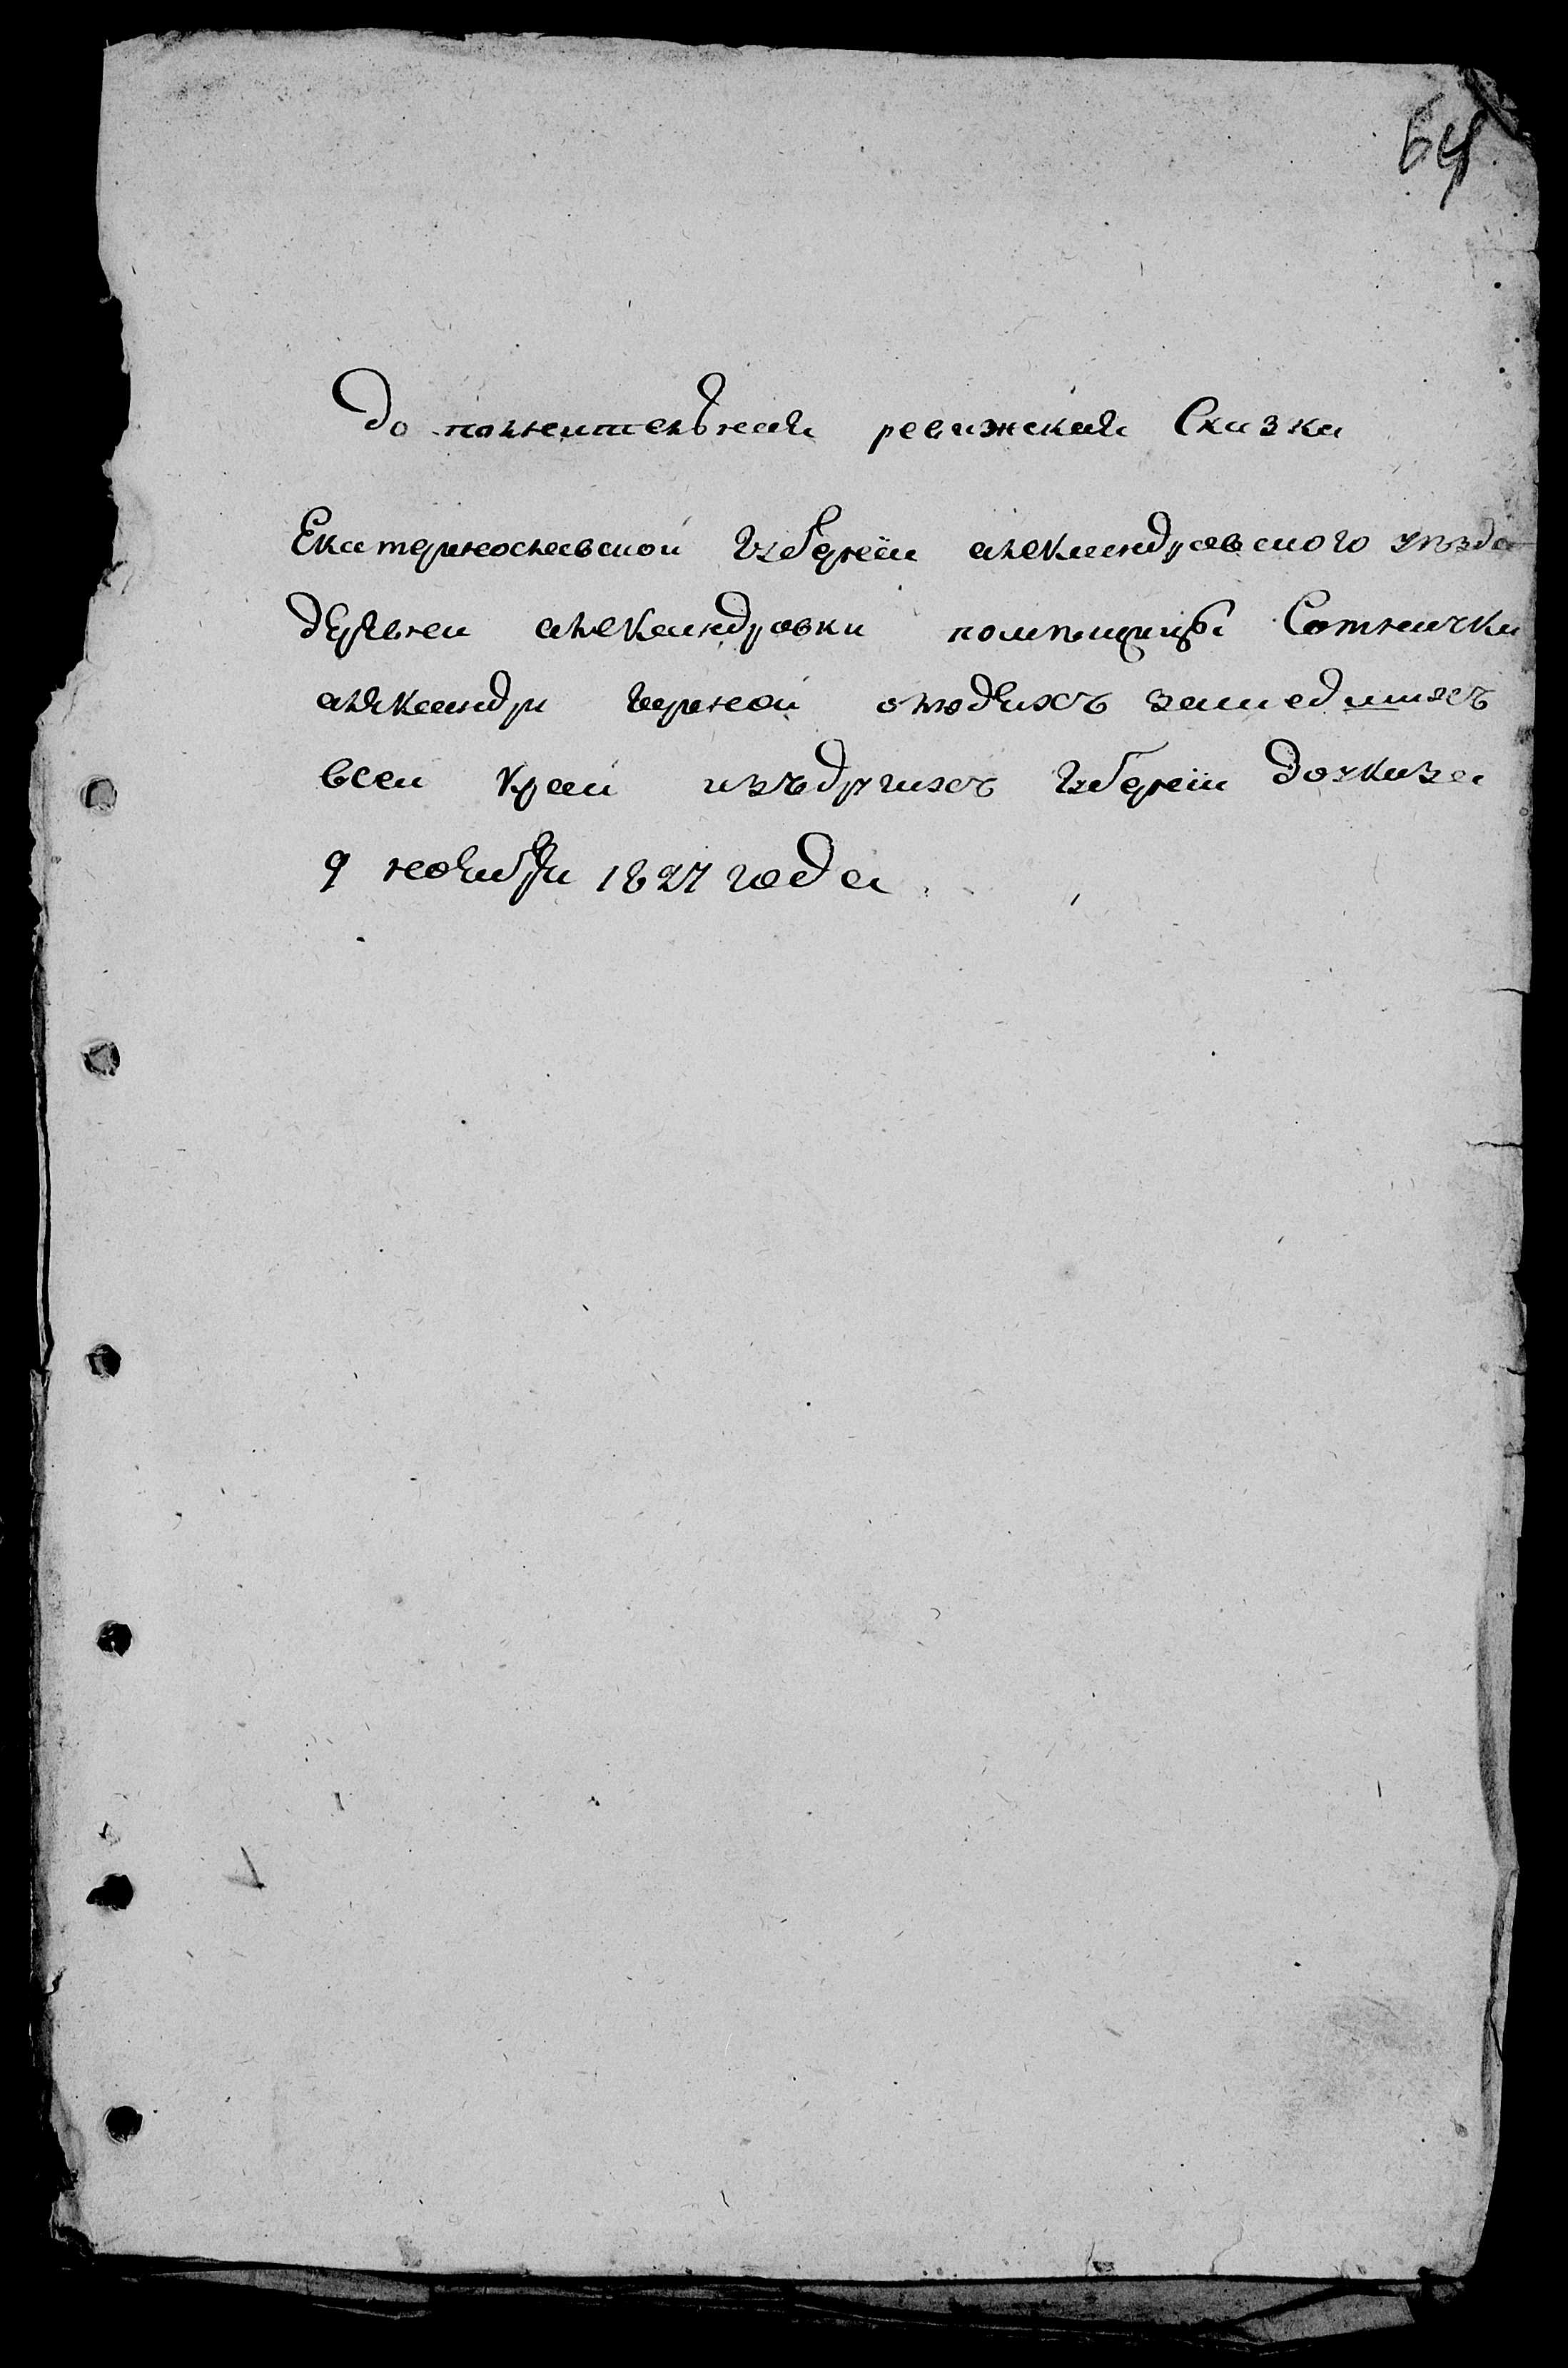 64
Дополнительная ревижская Сказка
Екатериославской губернїи александровского уѣзда
деревни александровки помѣщицы Сотнички
александры черной олюдяхъ зашедшихъ
всеи край изъдругихъ губернїи доуказа
9 ноября 1827 года